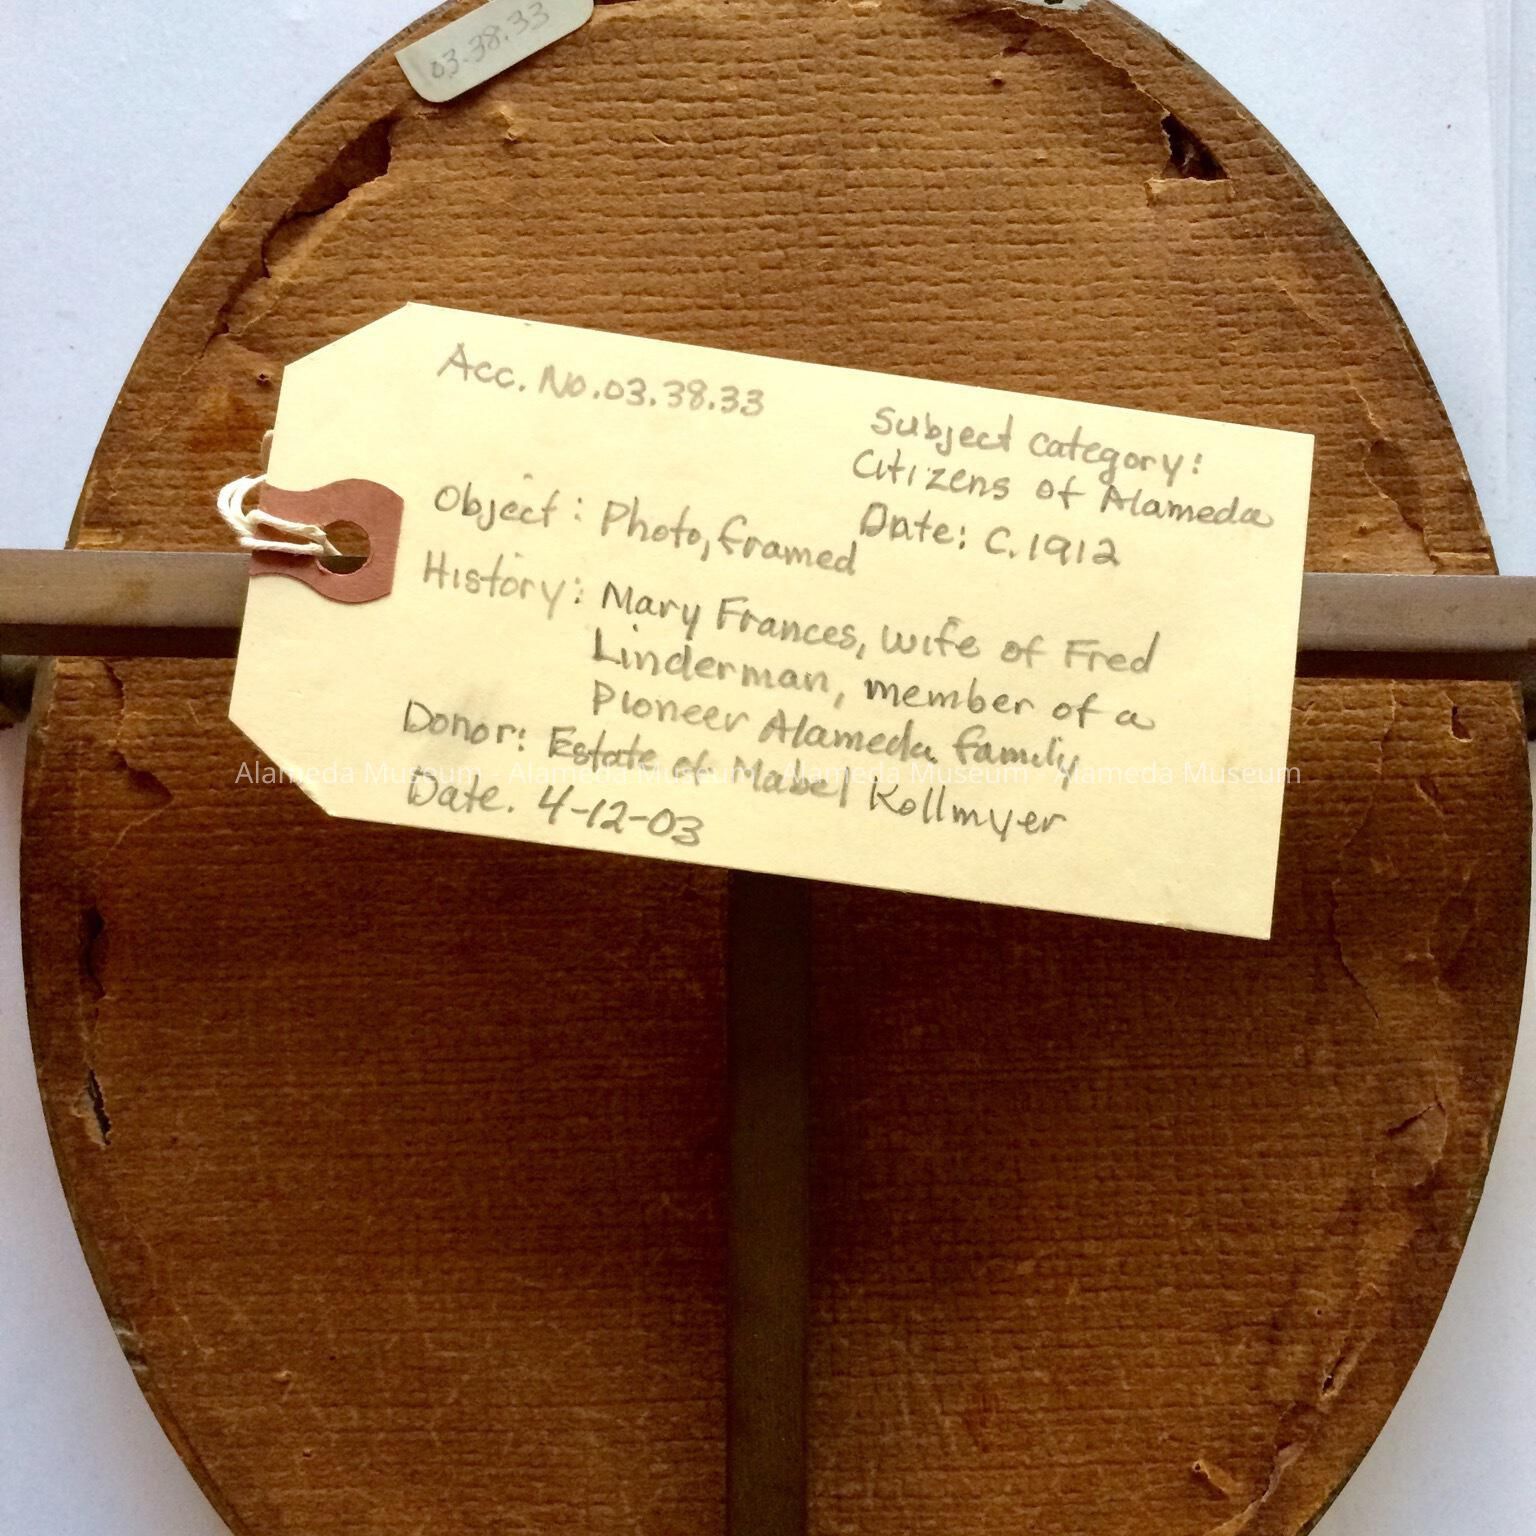 03.38.33
Acc. No. 03.38.33
Subject category:
Citizens of Alameda
Date: C. 1912
Object: Photo, framed
History: Mary Frances, wife of Fred
Linderman, member of a
Pioneer Alameda family
Donor: Estate of Mabel Kollmyer
Date. 4-12-03
Alameda Museum - Alameda Museum - Alameda Museum - Alameda Museum